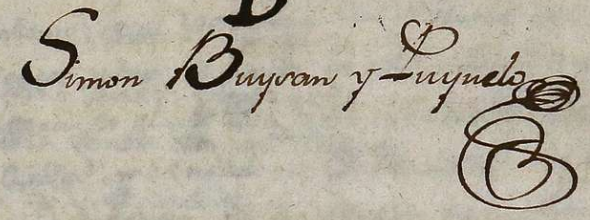 Simon Buysan y Puyuelo